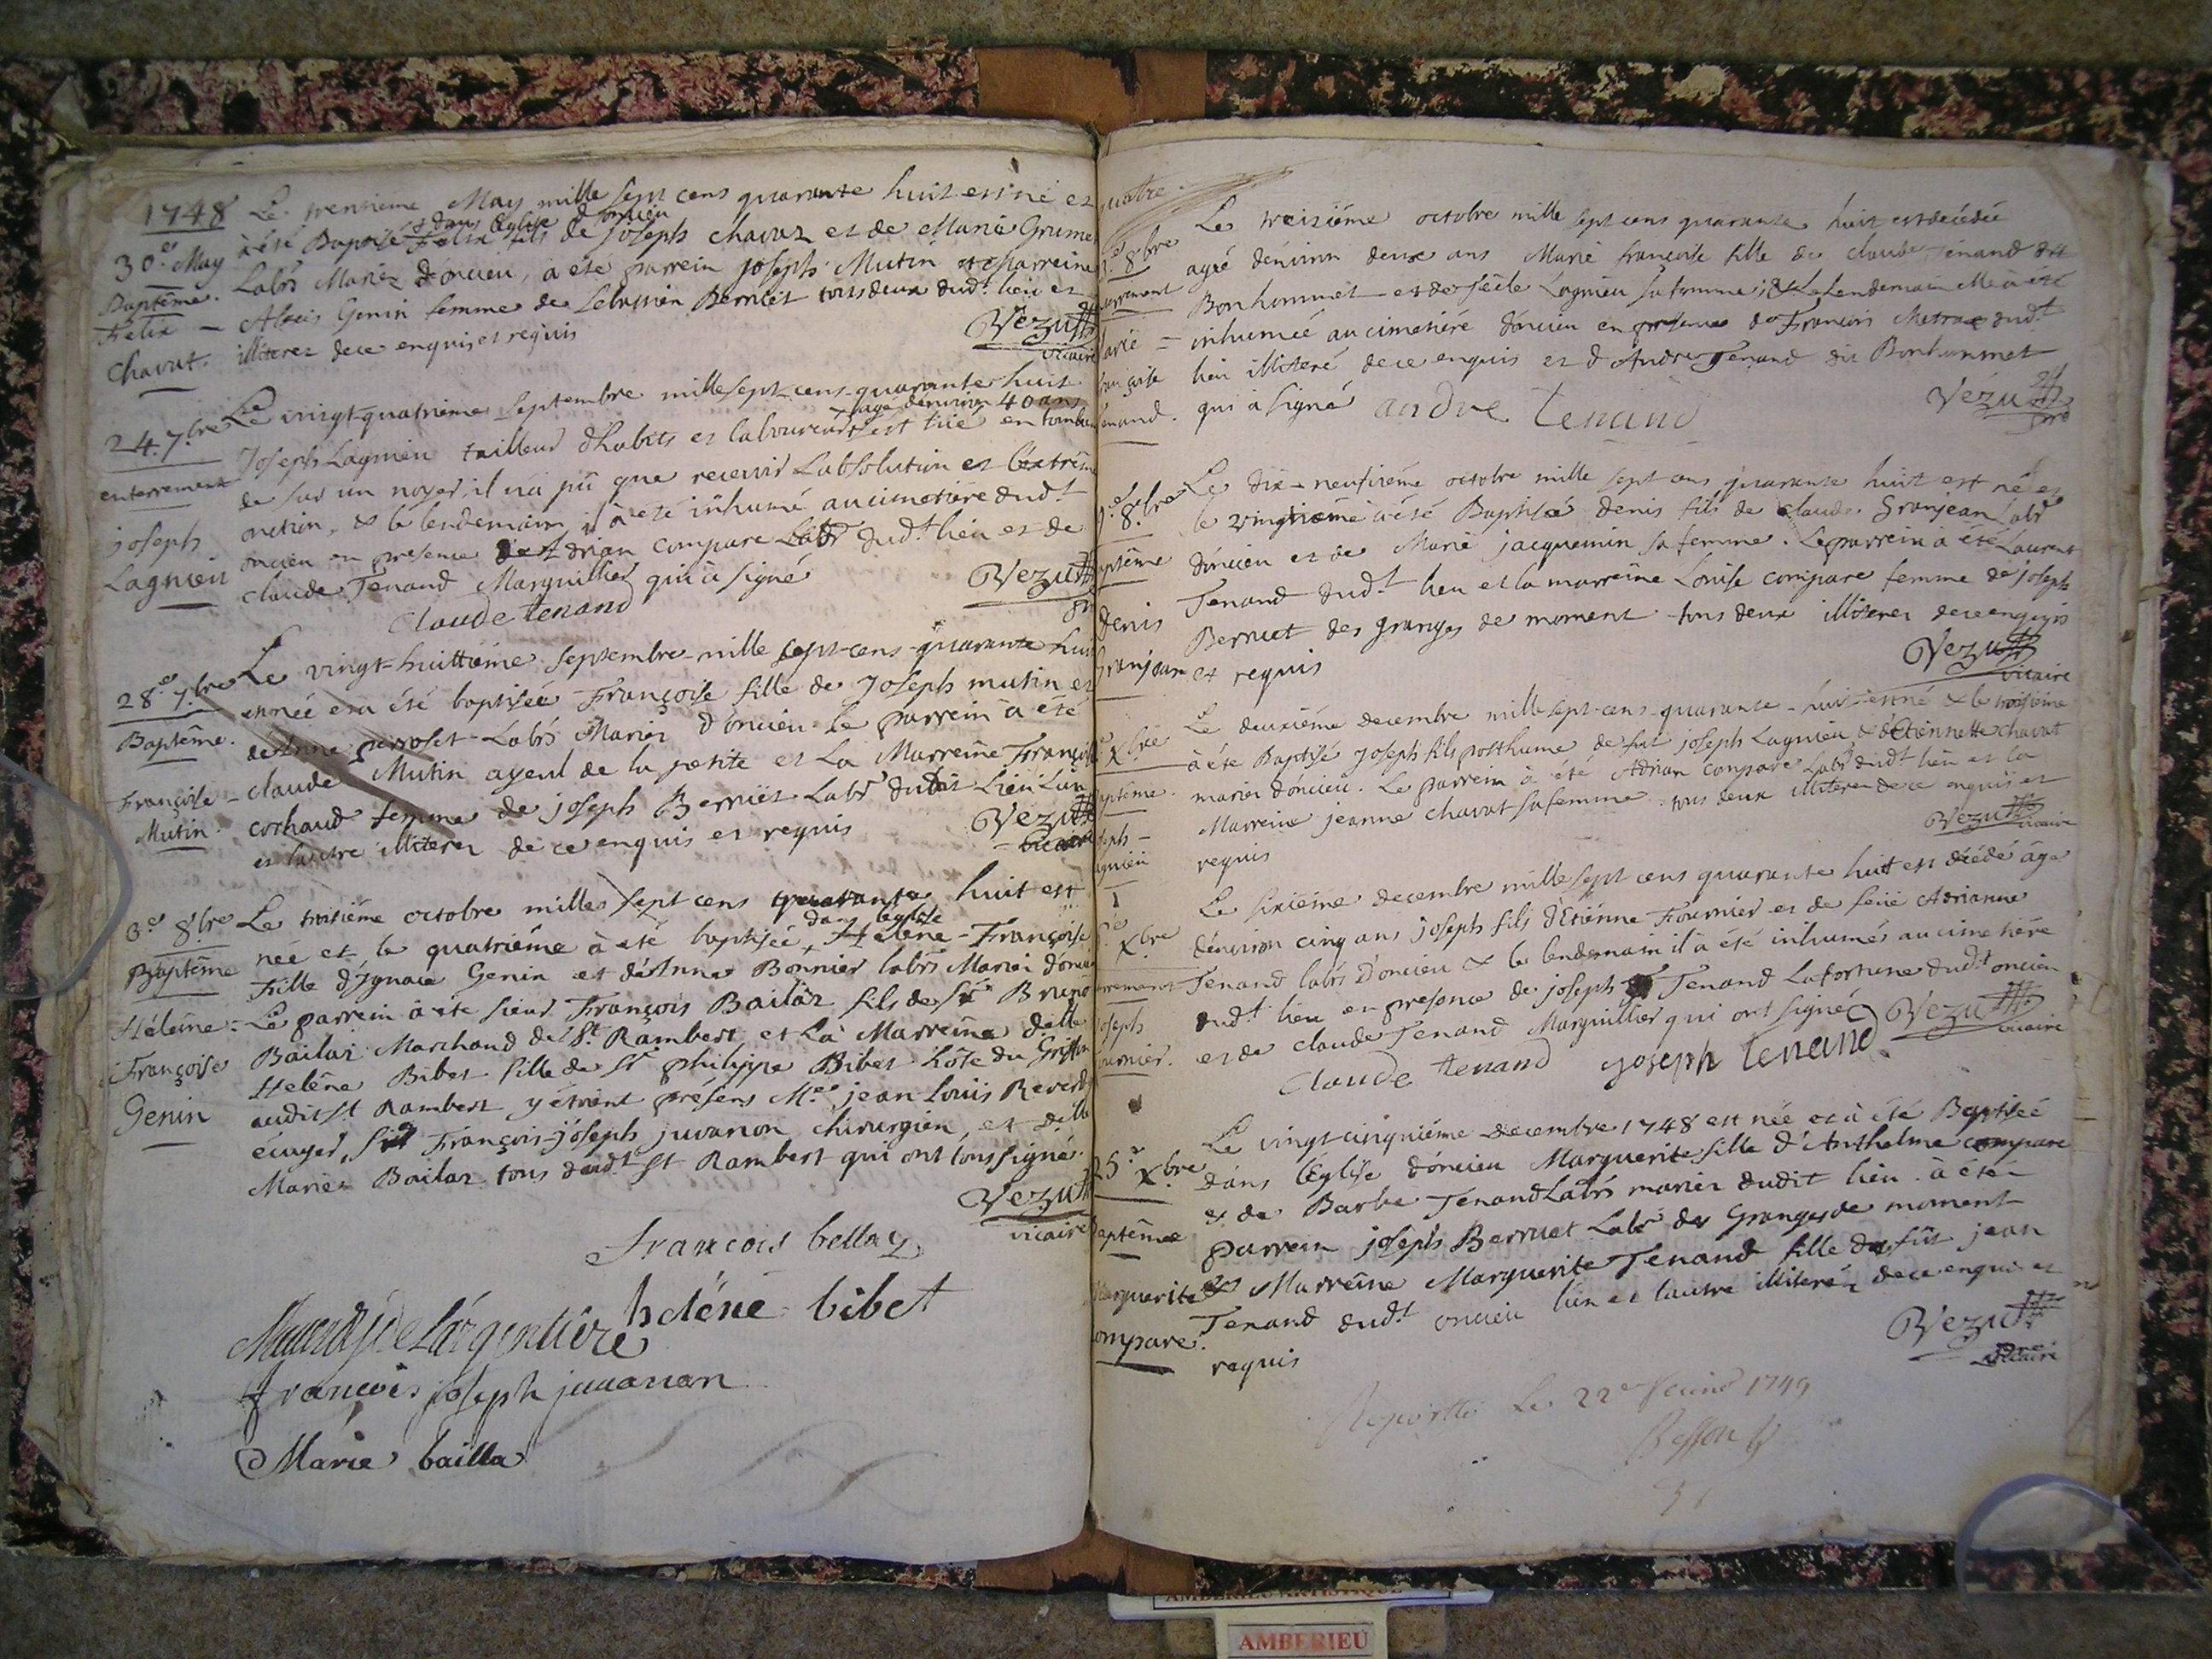 1748
30.e May
Baptême.
Felix
Chavat.
Le trentième May mille sept cens quarante huit est né et
à été Baptisé dans l'église d'oncieu Felix fils de Joseph chavat et de Marie Grumet
Labrs Mariez d'oncieu, à été parrein joseph Mutin et Marreine
Genin femme de Sebastien Berruet tous deux dud.t lieu et
illiterez de ce enquis et requis
Vezu
vicaire
24. 7.bre
enterrement
joseph
Lagnieu
Le vingt-quatrième Septembre mille sept-cens-quarante huit
Joseph Lagnieu tailleur d'habits et laboureur age d'environ 40 ans s'est tué en tombant
de sur un noyer, il n'a pû que recevoir L'absolution et l'extrême
onction, & le lendemain il à été inhumé au cimetière dud.t
oncieu en presence d'Adrian compare Labr dud.t lieu et de
claude Tenand Marguillier qui à signé
Vezu
Claude tenand
28.e 7.bre
Baptême.
Françoise
Mutin.
Le vingt-huittième septembre mille sept-cens-quarante huit
est née et a été baptisée Françoise fille de Joseph mutin et
d'Anne perroset Labrs Mariez d'oncieu le parrein à été
claude Mutin ayeul de la petite et La Marreine Françoise
cochaud femme de joseph Berruet Labr dudit Lieu L'un
et l'autre illiterez de ce enquis et requis
Vezu
vicaire
3.e 8.bre
Baptême
Hélène-
Françoise
Genin
Le troisième octobre mille sept cens quarante huit est
née et le quatrième à été baptisée dans l'église Helene-Françoise
Fille d'Ignace Genin et d'Anne Bonnier labrs Mariez d'oncieu
Le parrein à été sieur François Bailar fils de Sr Bruno
Bailar Marchand de St. Rambert et La Marreine d.elle
Helène Bibet fille de Sr philippe Bibet hôte du Griffon
audit St Rambert y étoient présens M.re jean Louis Reverdy
écuyer, Sr François-joseph juvanon chirurgien, et d.elle
Marie Bailar tous dudt St Rambert qui ont tous signé.
Vezu
vicaire
francois bellay
helene bibet
de l'argentière
françois joseph juvanon
Marie bailla
quatre
8.bre
Marie
françoise
Tenand.
Le treizième octobre mille sept cens quarante huit est decedée
agée d'environ deux ans Marie françoise fille de claude Tenand dit
Bonhommet et de feüe Lagnieu sa femme; & le Lendemain elle à été
inhumée au cimetière d'oncieu en presence de François Metral dud.t
lieu illiteré de ce enquis et d'Andre Tenand dit Bonhommet
qui à signé
andre tenand
Vezu
pre
8.bre
Baptême
Denis
Granjean
Le dix-neufième octobre mille sept cens quarante huit est né et
le vingtième à été Baptisé Denis fils de claude Granjean Labr
d'oncieu et de Marie jacquemin sa femme. Le parrein à été Laurent
Tenand dud.t lieu et la marreine Louise compare femme de joseph
Berruet des granges de moment tous deux illiterez de ce enquis
et requis
Vezu
vicaire
X.bre
Baptême.
Joseph
Lagnieu
Le deuxième decembre mille sept-cens-quarante-huit est né & le troisième
à été Baptisé Joseph fils posthume de fut joseph Lagnieu & d'Etiennette chavat
mariez d'oncieu. Le parrein à été Adrian compare Labr dud.t lieu et la
Marreine jeanne chavat sa femme tous deux illiterez de ce enquis et
requis
Vezu
vicaire
X.bre
enterrement
Joseph
Fournier.
Le sixième decembre mille sept cens quarante huit est décédé âgé
d'environ cinq ans joseph fils d'Etiénne Fournier et de feüe Adrianne
Tenand labrs d'oncieu & le lendemain il à été inhumé au cimetière
dud.t lieu en presence de joseph Tenand Lafortune dud.t oncieu
et de claude Tenand Marguillier qui ont signé
Vezu
vicaire
Claude tenand joseph tenand
25.e X.bre
Baptême
Marguerite
Compare.
Le vingt-cinquième decembre 1748 est née et à été Baptisée
dans l'église d'oncieu Marguerite fille d'Anthelme compare
et de Barbe Tenand Labrs mariez dudit lieu. à été
parrein joseph Berruet Labr des Granges de moment
et Marreine Marguerite Tenand fille de fût jean
Tenand dud.t oncieu l'un et l'autre illiterez de ce enquis et
requis
Vezu
pre
vicaire
Le 22e 1749
Besson
AMBERIEU